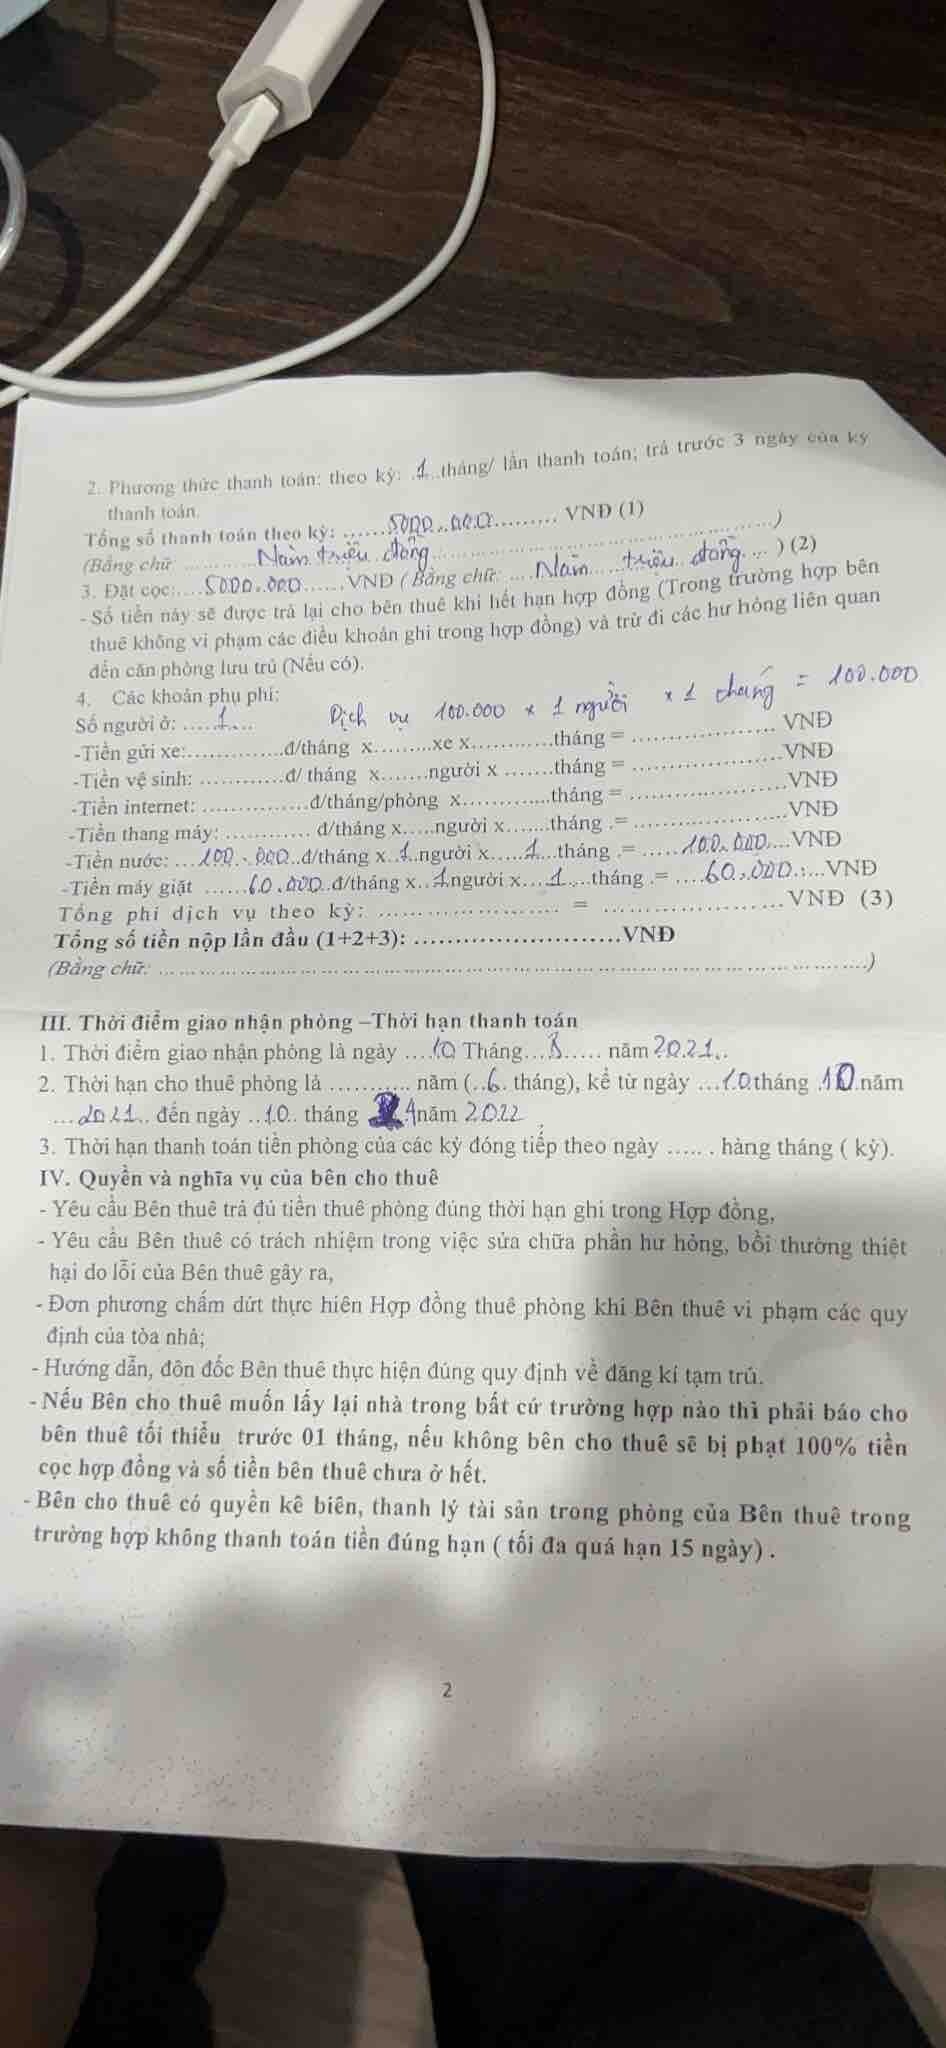 2. Phương thức thanh toán: theo kỳ: ..1..tháng/ lần thanh toán; trả trước 3 ngày của kỳ
thanh toán.
Tổng số thanh toán theo kỳ: ......5000..000......... VNĐ (1)
(Bằng chữ ............Năm triệu đồng..............................)
3. Đặt cọc:....5000.000......VNĐ ( Bằng chữ: ....Năm....triệu..đồng.... ) (2)
- Số tiền này sẽ được trả lại cho bên thuê khi hết hạn hợp đồng (Trong trường hợp bên
thuê không vi phạm các điều khoản ghi trong hợp đồng) và trừ đi các hư hỏng liên quan
đến căn phòng lưu trú (Nếu có).
4. Các khoản phụ phí:
Dịch vụ 100.000 x 1 người x 1 tháng = 100.000
Số người ở: .....1....
-Tiền gửi xe:..............đ/tháng x.........xe x............tháng = .................... VNĐ
-Tiền vệ sinh: ............đ/ tháng x.......người x .......tháng = .....................VNĐ
-Tiền internet: ...............đ/tháng/phòng x.............tháng = .....................VNĐ
-Tiền thang máy: ............ đ/tháng x.....người x.......tháng .= .....................VNĐ
-Tiền nước: ...100..000..đ/tháng x..1..người x.....1...tháng .= .....100.000....VNĐ
-Tiền máy giặt ......60.000..đ/tháng x..1người x...1....tháng .= ....60.000.....VNĐ
Tổng phí dịch vụ theo kỳ: ...................... = ......................VNĐ (3)
Tổng số tiền nộp lần đầu (1+2+3): ..........................VNĐ
(Bằng chữ: ........................................................................)
III. Thời điểm giao nhận phòng –Thời hạn thanh toán
1. Thời điểm giao nhận phòng là ngày ....10 Tháng...8..... năm 2021..
2. Thời hạn cho thuê phòng là ........... năm (..6. tháng), kể từ ngày ...10.tháng .10.năm
...2021.. đến ngày ..10.. tháng 4năm 2022
3. Thời hạn thanh toán tiền phòng của các kỳ đóng tiếp theo ngày ..... . hàng tháng ( kỳ).
IV. Quyền và nghĩa vụ của bên cho thuê
- Yêu cầu Bên thuê trả đủ tiền thuê phòng đúng thời hạn ghi trong Hợp đồng,
- Yêu cầu Bên thuê có trách nhiệm trong việc sửa chữa phần hư hỏng, bồi thường thiệt
hại do lỗi của Bên thuê gây ra,
- Đơn phương chấm dứt thực hiện Hợp đồng thuê phòng khi Bên thuê vi phạm các quy
định của tòa nhà;
- Hướng dẫn, đôn đốc Bên thuê thực hiện đúng quy định về đăng kí tạm trú.
- Nếu Bên cho thuê muốn lấy lại nhà trong bất cứ trường hợp nào thì phải báo cho
bên thuê tối thiểu trước 01 tháng, nếu không bên cho thuê sẽ bị phạt 100% tiền
cọc hợp đồng và số tiền bên thuê chưa ở hết.
- Bên cho thuê có quyền kê biên, thanh lý tài sản trong phòng của Bên thuê trong
trường hợp không thanh toán tiền đúng hạn ( tối đa quá hạn 15 ngày) .
2